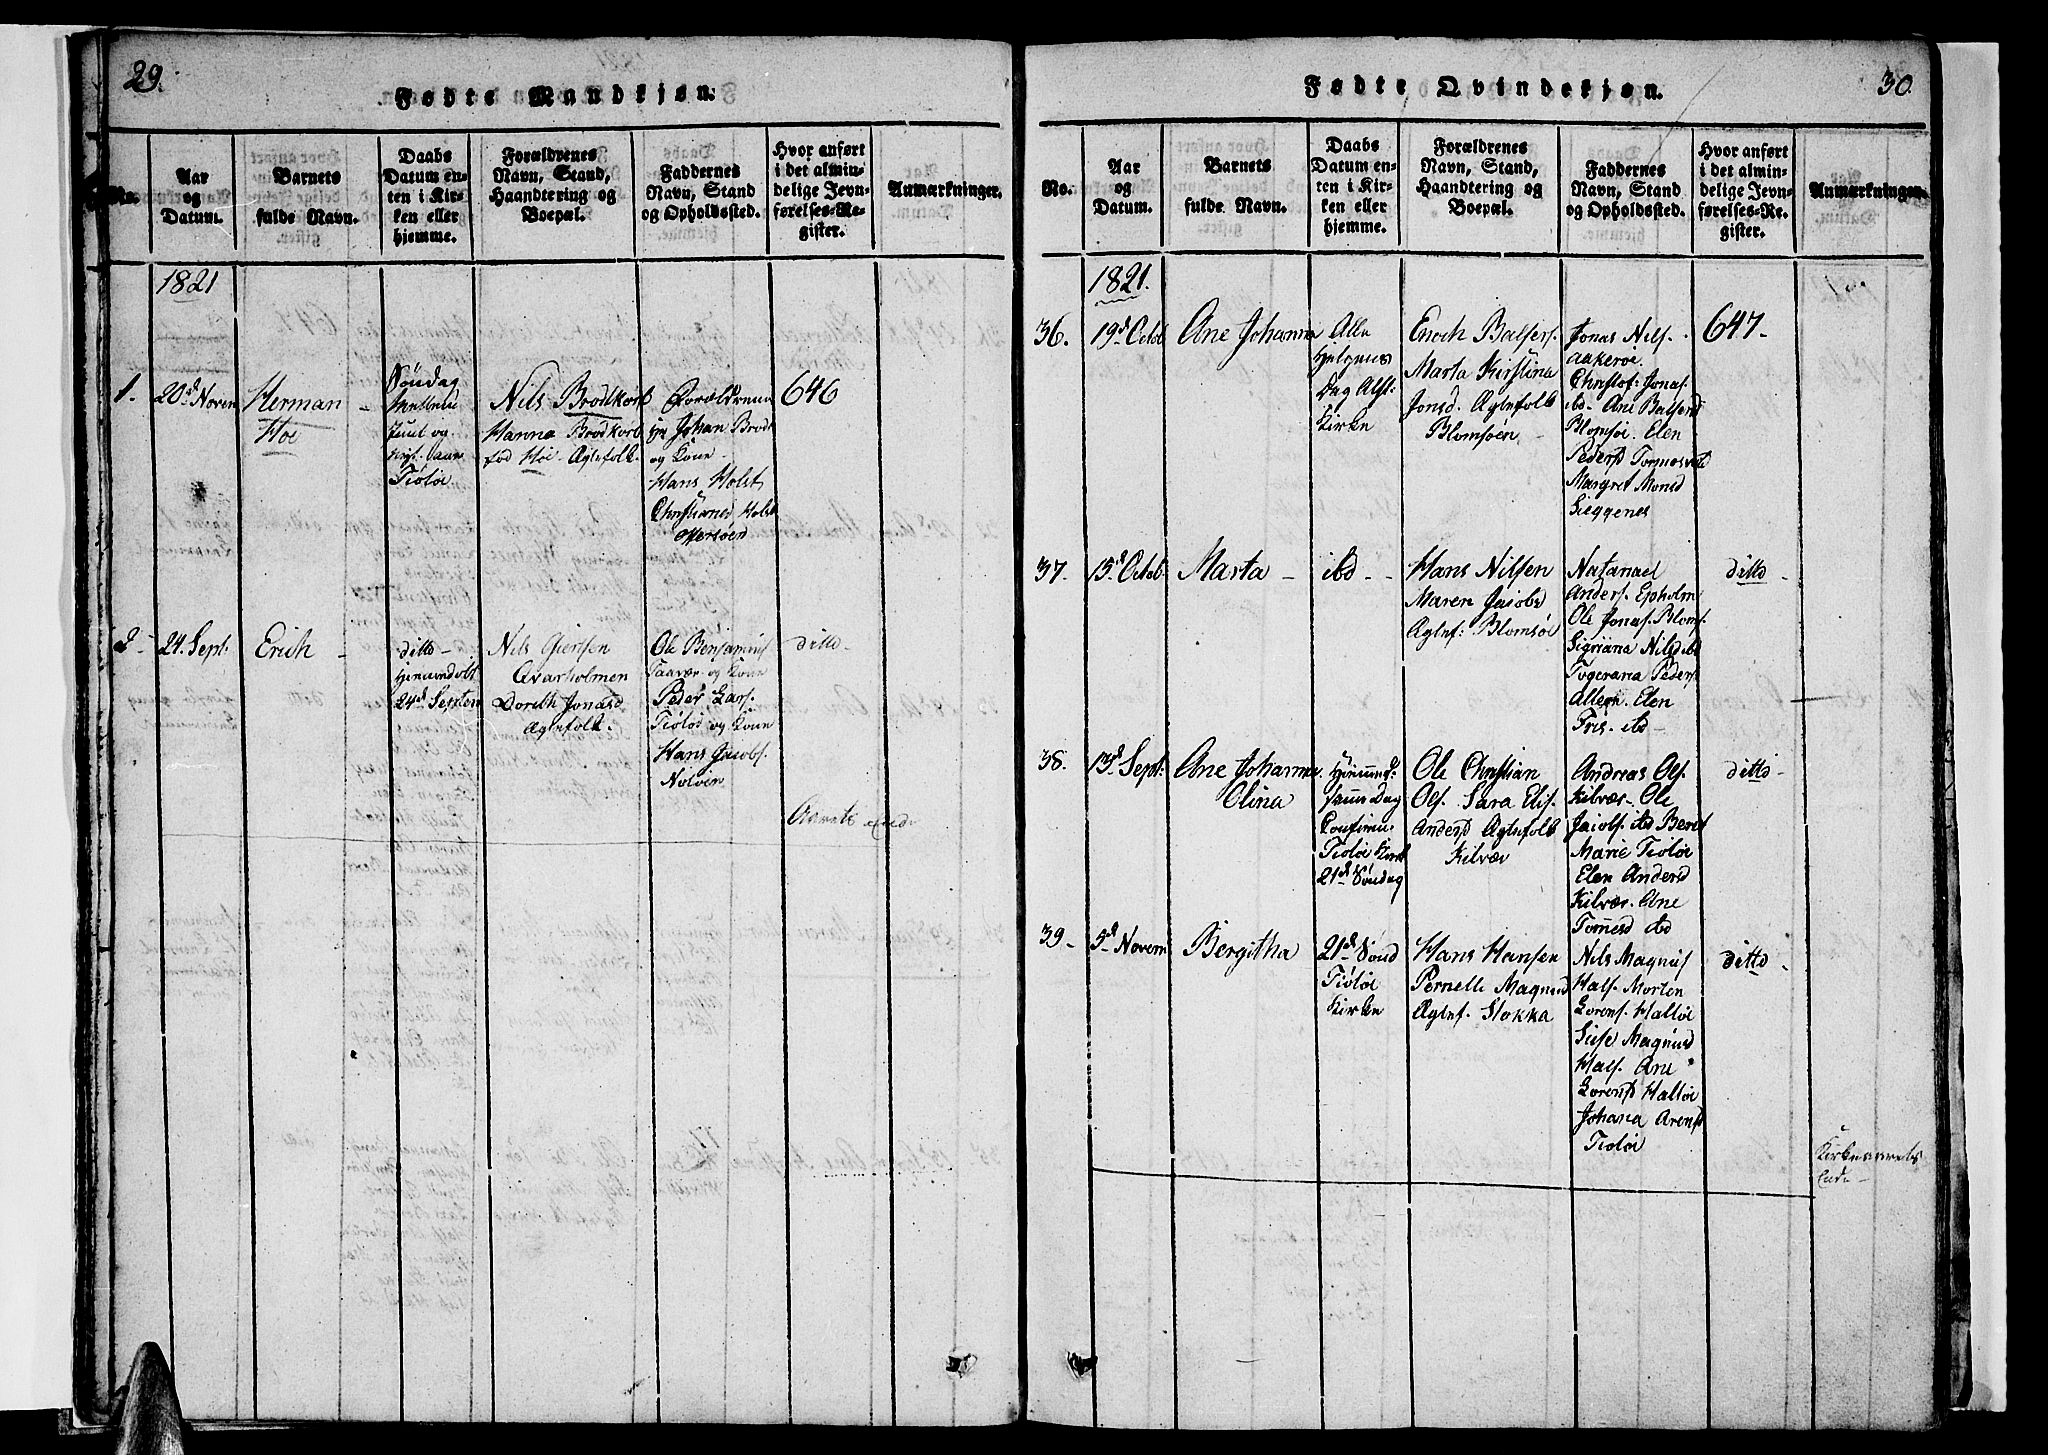 29.
Fødte Mandkjøn.
No.
Aar
og
Datum.
Barnets
fulde Navn.
Daabs
Datum en-
ten i Kir-
ken eller
hjemme.
Forældrenes
Navn, Stand,
Haandtering og
Boepæl.
Faddernes
Navn, Stand
og Opholdssted.
Hvor anført
i det almin-
delige Jevn-
førelses-Re-
gister.
Anmærkninger.
1821
1.
20d Novem
Herman
Hoe
Søndag
Tiøtøe
Nils Brodtkorb
Hanna Brodkorb
fød Høe. Ægtefolk.
Forældrene
Johan Brodk
og Kone
Hans Holst
Christiane Holst
646
2
24. Sept.
Erich
ditto
24d Septem
Nils Giertsen
Qvarholmen
Dorith Jonasd
Ægtefolk.
Ole Benjamins
og Kone
Peder Lars.
Tiøtøe og Kone
Hans Jacobs.
ditto
Aarets Ende
30.
Fødte Qvindekjøn.
No.
Aar
og
Datum.
Barnets
fulde Navn.
Daabs
Datum en-
ten i Kir-
ken eller
hjemme.
Forældrenes
Navn, Stand,
Haandtering og
Boepæl.
Faddernes
Navn, Stand
og Opholdssted.
Hvor anført
i det almin-
delige Jevn-
førelses-Re-
gister.
Anmærkninger.
1821.
36.
19d Octob
Ane Johanna
Alle
Helgenes
Dag Alst.
Kirke
Enoch Balsers.
Marta Kirstina
Jonsd. Ægtefolk
Blomsøen
Jonas Nils.
Aakerøe.
Christof: Jonas.
ibd. Ane Balsersd
Blomsøe. Elen
Pedersd
Margret Monsd
647.
37.
15d Octob.
Marta
ibd
Hans Nilsen
Maren Jacobsd
Ægtef: Blomsøe
Natanael
Anders.
Ole Jonas. Bloms.
Nilsd ibd
Elen
ibd
ditto
38.
13d Sept:
Ane Johanna
Olina
Tiøtøe Kirke
21d Søndag
Ole Christian
Ols. Sara Elis.
Andersd Ægtefolk
Kilvær
Andreas Ols.
Kilvær. Ole
Jacobs. ibd Beret
Marie Tiøtøe
Elen Andersd
Kilvær. Ane
ibd
ditto
39.
5d Novem
Bergitha
21d Sønd
Tiøtøe
Kirke
Hans Hansen
Pernelle Magnusd
Ægtef. Stokka
Nils Magnus
Hals. Morten
Lorens. Haltøe
Magnusd
Hals. Ane
Lorensd Haltøe
Johana Arensd
Tiøtøe
ditto
Kirkeaarets
Ende